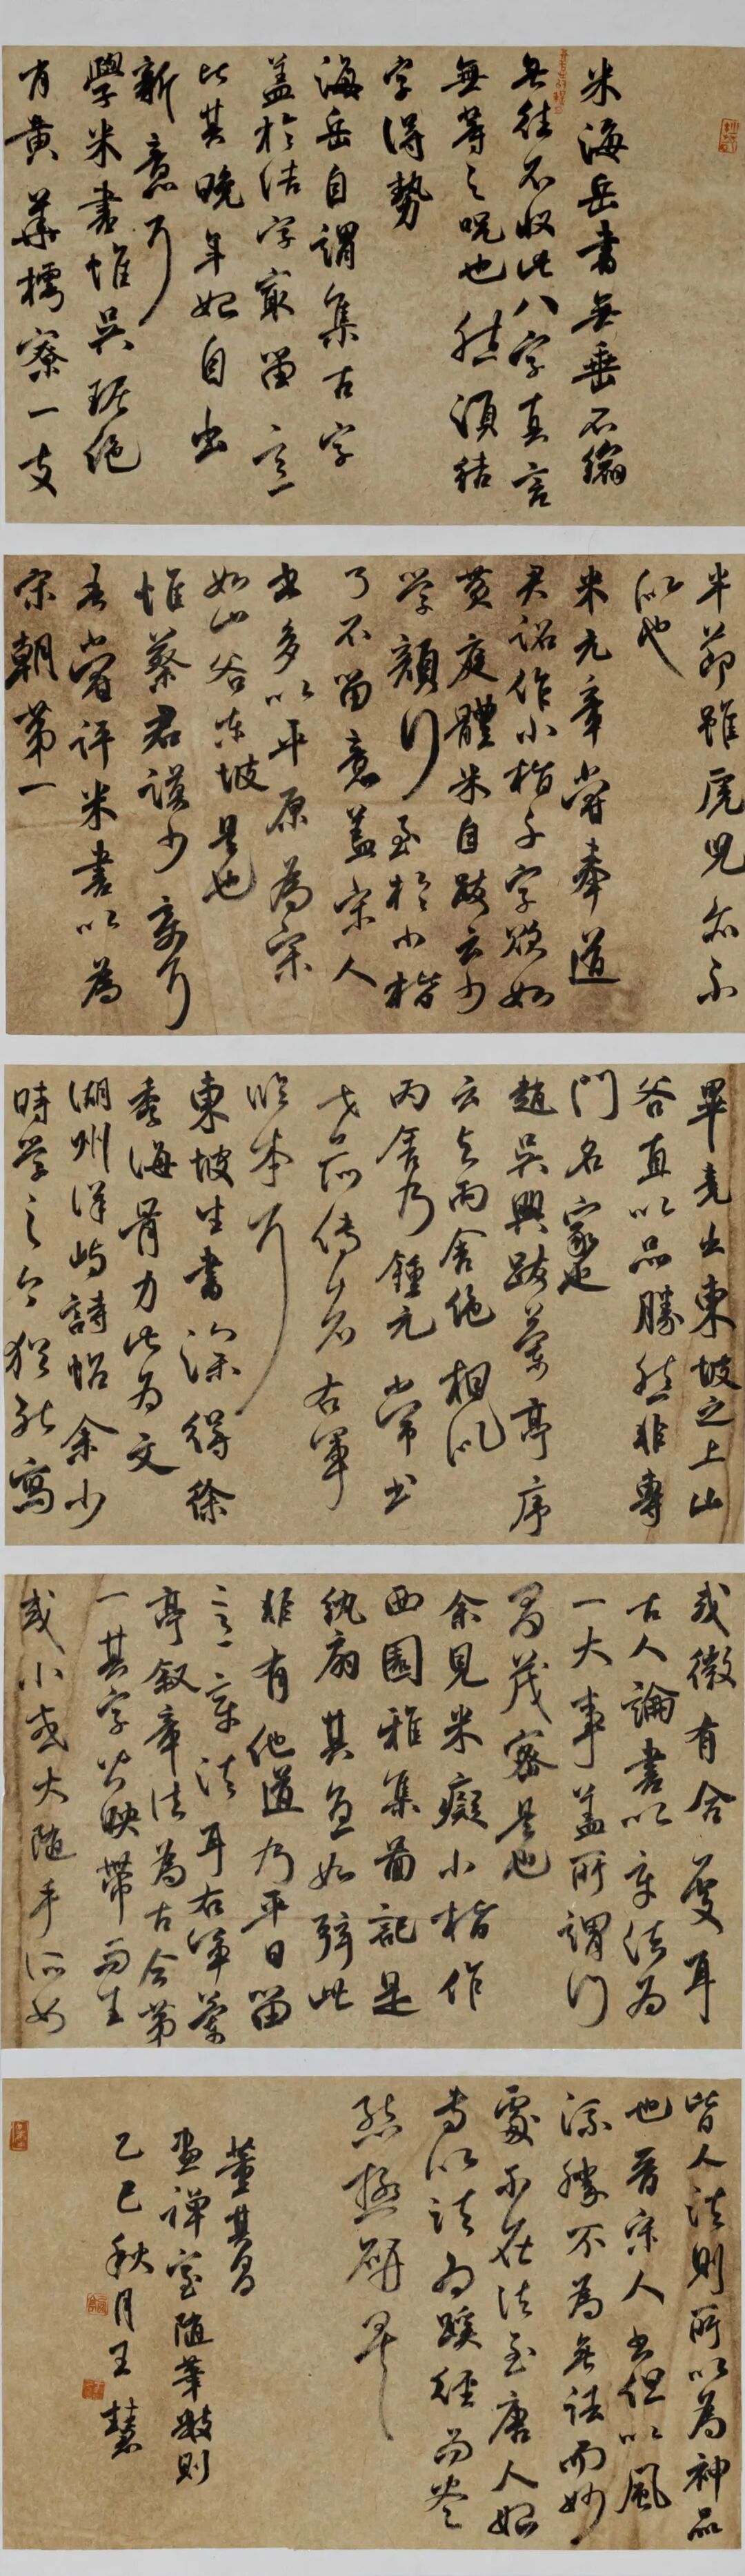 米海岳書無垂不縮
無往不收此八字真言
無等之呪也然須結
字得勢
海岳自謂集古字
蓋於結字最留意
比其晚年始自出
新意耳
學米書惟吳琚絕
肖黃華樗寮一支
半節雖虎兒亦不
似也
米元章嘗奉道
君詔作小楷千字欲如
黃庭體米自跋云少
學顏行至於小楷
了不留意蓋宋人
書多以平原為宗
如山谷東坡是也
惟蔡君謨少變耳
吾嘗評米書以為
宋朝第一
畢竟出東坡之上山
谷直以品勝然非專
門名家也
趙吳興跋蘭亭序
云與丙舍絕相似
丙舍乃鍾元常書
世所傳者右軍
臨本耳
東坡先生書深得徐
季海骨力此為文
湖州洋嶼詩帖余少
時學之今猶能寫
或微有合處耳
古人論書以章法為
一大事蓋所謂行
間茂密是也
余見米癡小楷作
西園雅集圖記是
紈扇其直如弦此
非有他道乃平日留
意章法耳右軍蘭
亭敘章法為古今第
一其字皆映帶而生
或小或大隨手所如
皆入法則所以為神品
也晉宋人書但以風
流勝不為無法而妙
處不在法至唐人始
專以法為蹊徑而盡
態極妍矣
董其昌
畫禪室隨筆數則
乙巳秋月王慧